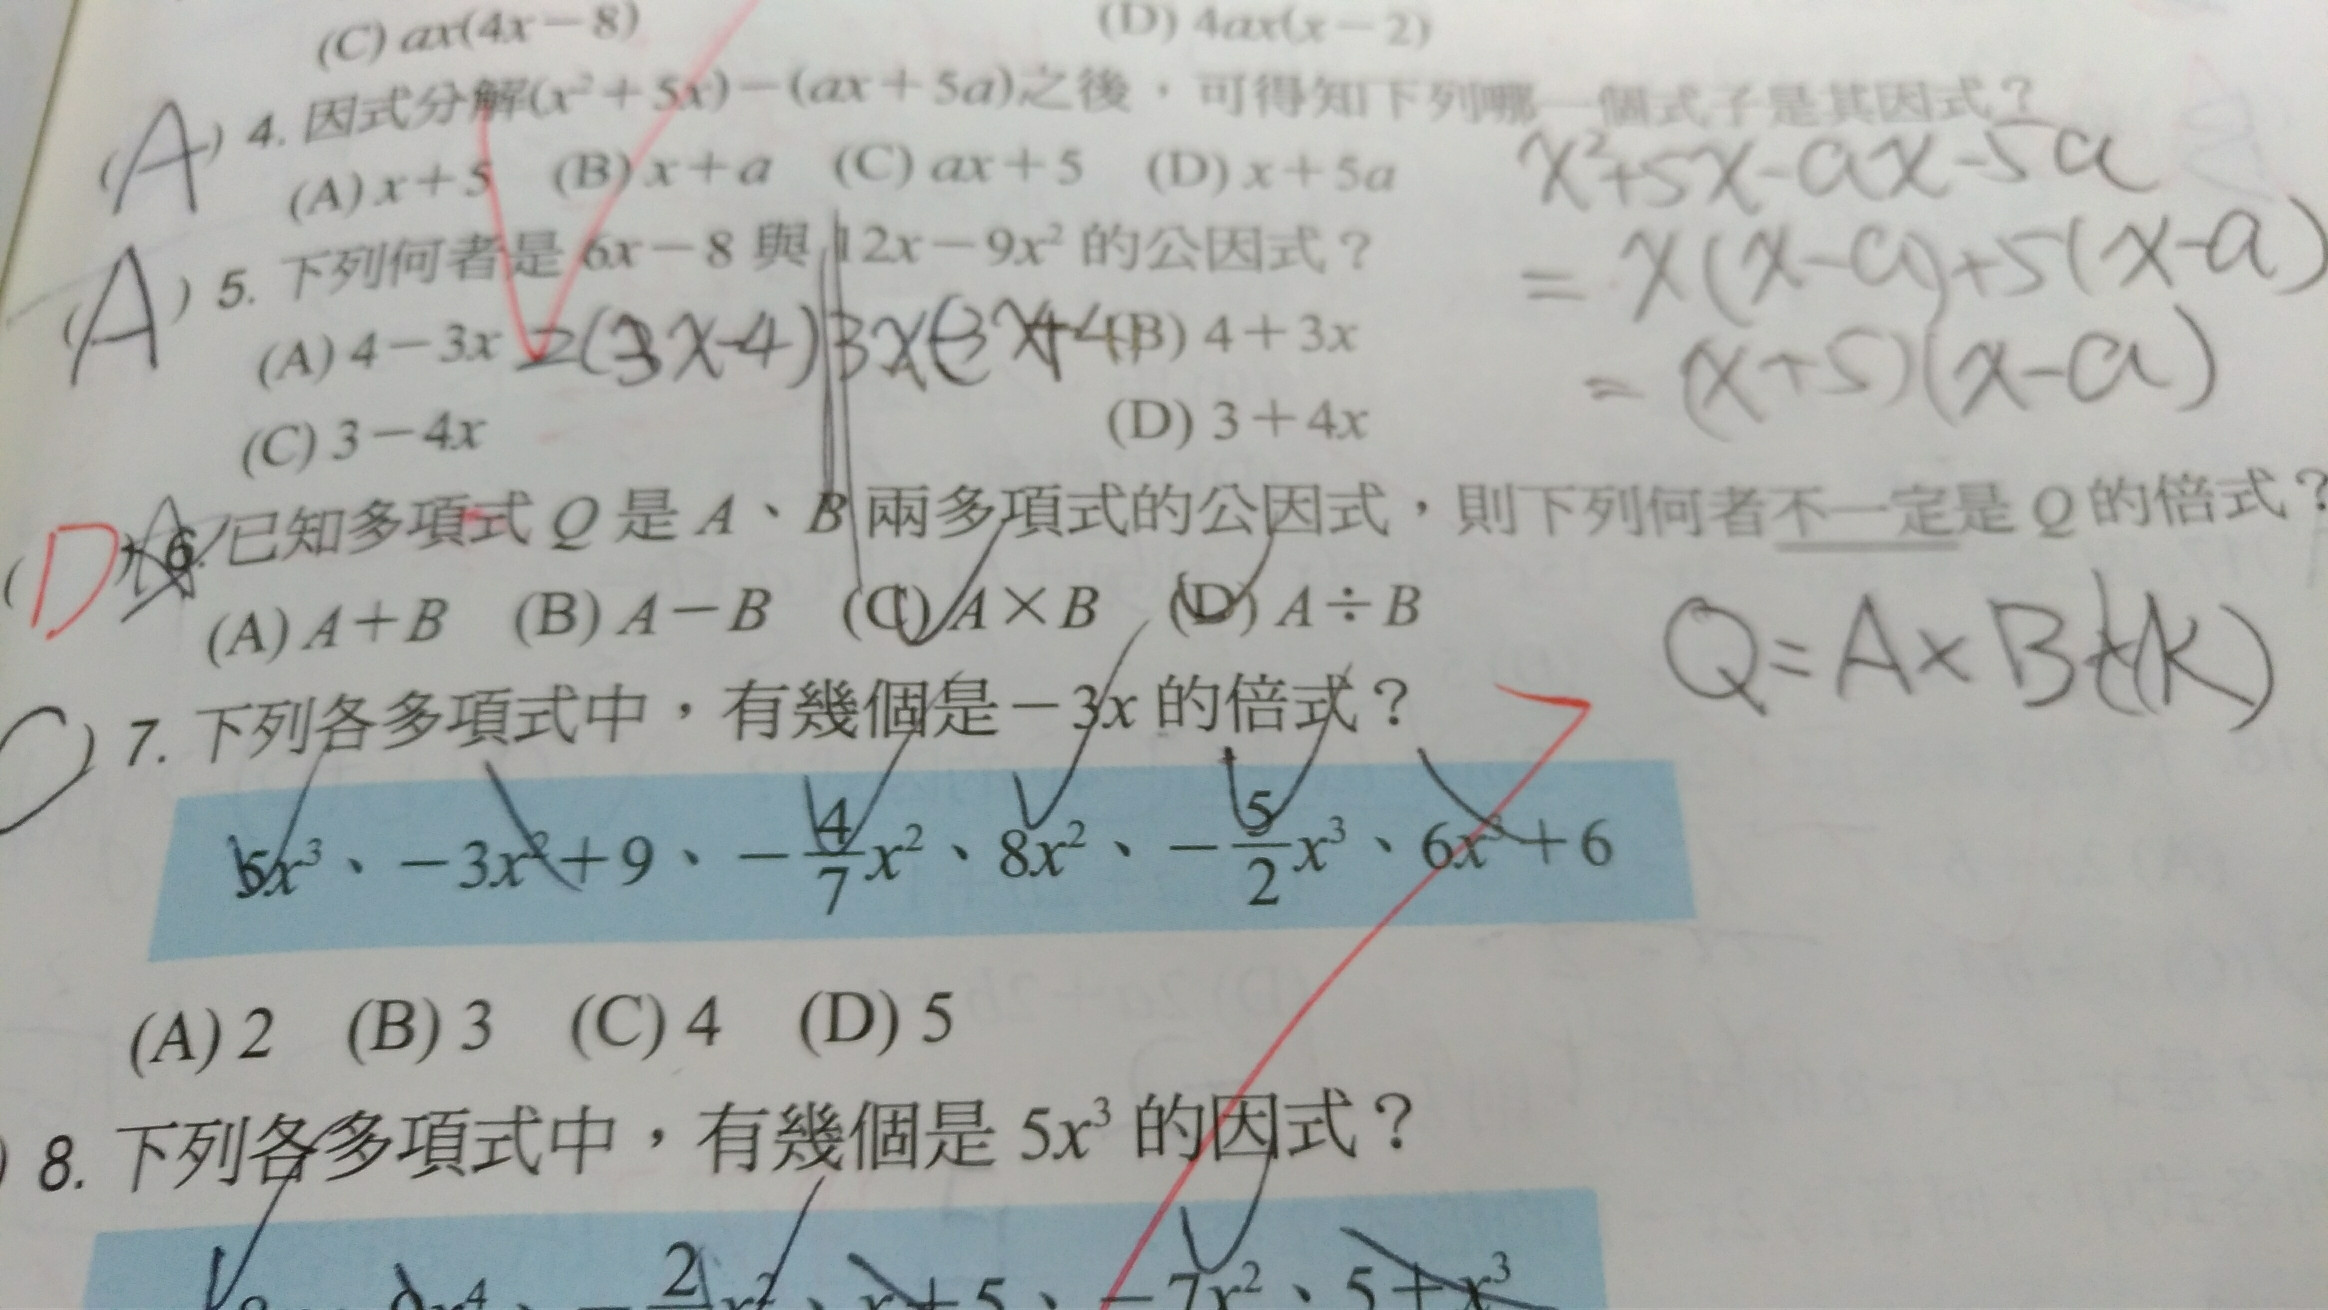 (C) ax(4x－8) (D) 4ax(x－2)
(A) 4. 因式分解(x²＋5x)－(ax＋5a)之後，可得知下列哪一個式子是其因式？
(A) x＋5 (B) x＋a (C) ax＋5 (D) x＋5a
x²+5x-ax-5a
= x(x-a)+5(x-a)
= (x+5)(x-a)
(A) 5. 下列何者是 6x－8 與 12x－9x² 的公因式？
(A) 4－3x 2(3x-4) 3x(-3x+4) (B) 4＋3x
(C) 3－4x (D) 3＋4x
(D) 6. 已知多項式 Q 是 A、B 兩多項式的公因式，則下列何者不一定是 Q 的倍式？
(A) A＋B (B) A－B (C) A×B (D) A÷B
Q=A×B
(C) 7. 下列各多項式中，有幾個是－3x 的倍式？
5x³、－3x²＋9、－4/7x²、8x²、－5/2x³、6x³＋6
(A) 2 (B) 3 (C) 4 (D) 5
) 8. 下列各多項式中，有幾個是 5x³ 的因式？
x＋5、－7x²、5＋x³